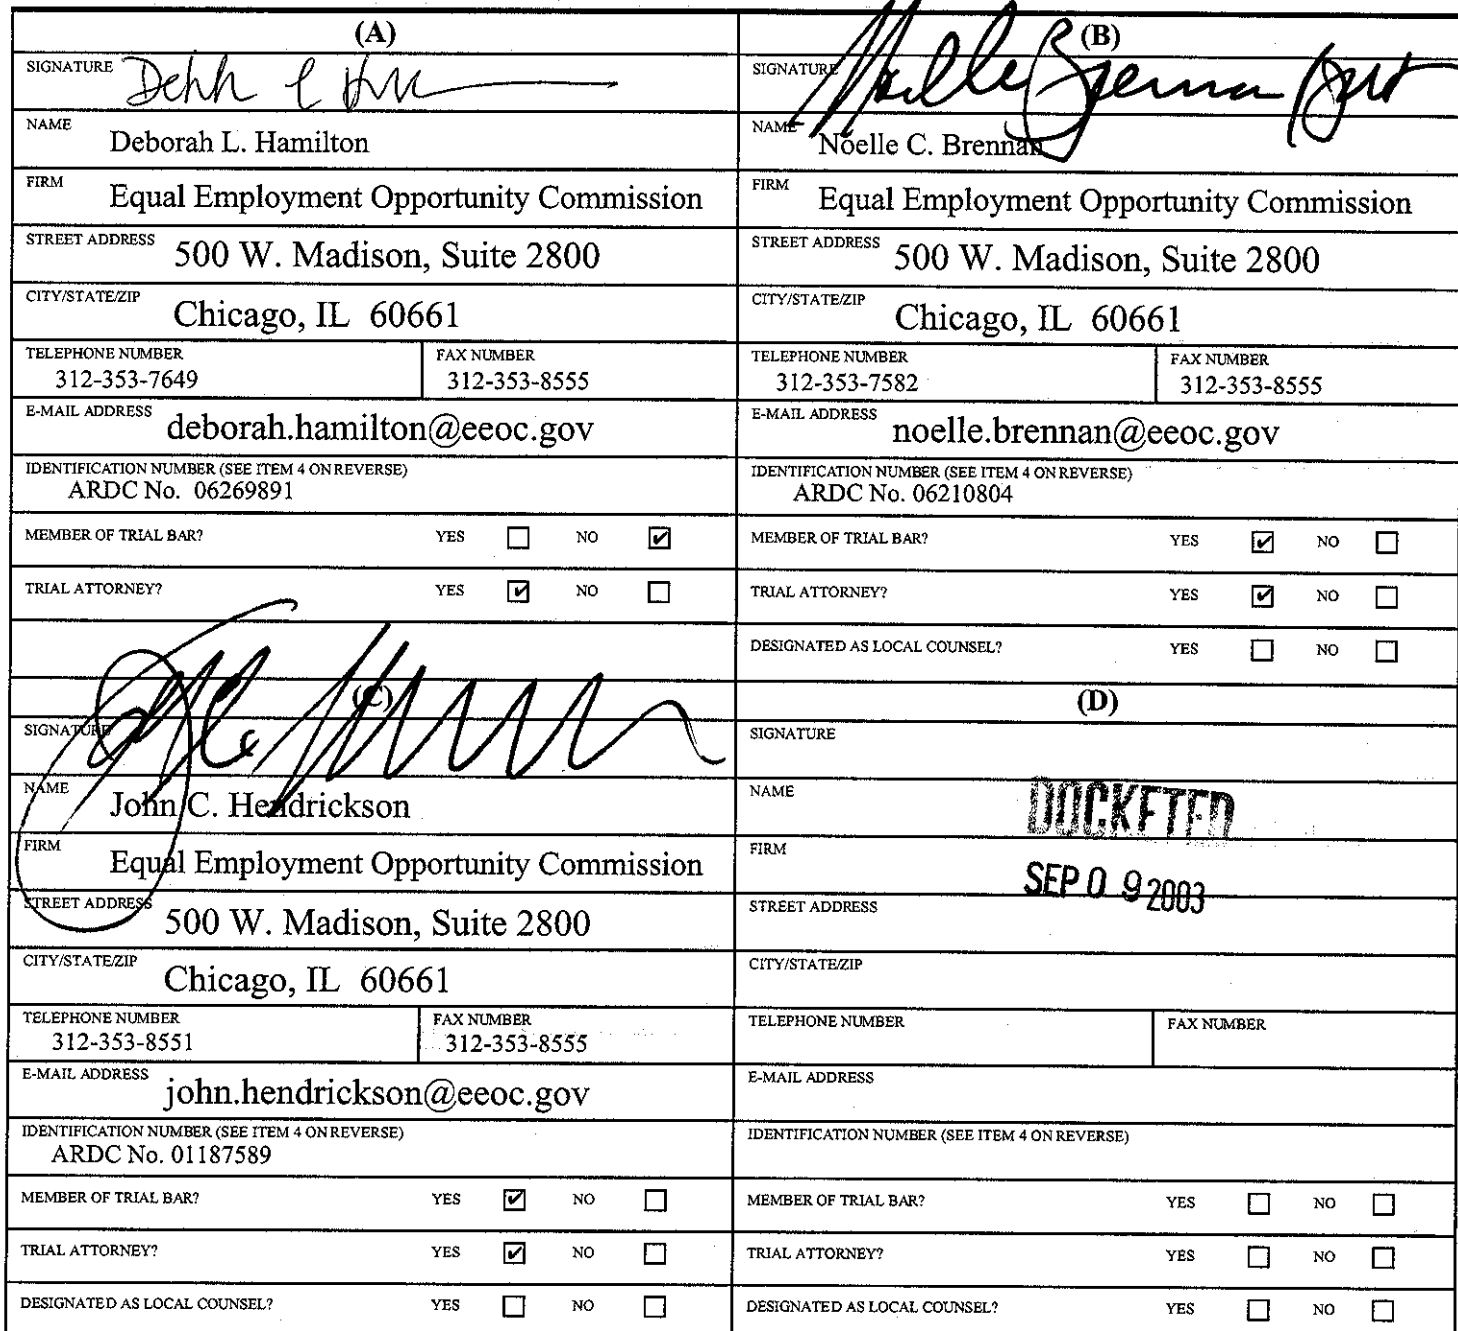 (A)
SIGNATURE
NAME
Deborah L. Hamilton
FIRM
Equal Employment Opportunity Commission
STREET ADDRESS
500 W. Madison, Suite 2800
CITY/STATE/ZIP
Chicago, IL 60661
TELEPHONE NUMBER
312-353-7649
FAX NUMBER
312-353-8555
E-MAIL ADDRESS
deborah.hamilton@eeoc.gov
IDENTIFICATION NUMBER (SEE ITEM 4 ON REVERSE)
ARDC No. 06269891
MEMBER OF TRIAL BAR? YES ☐ NO ☑
TRIAL ATTORNEY? YES ☑ NO ☐
(B)
SIGNATURE
Noelle Brennan
NAME
Noelle C. Brennan
FIRM
Equal Employment Opportunity Commission
STREET ADDRESS
500 W. Madison, Suite 2800
CITY/STATE/ZIP
Chicago, IL 60661
TELEPHONE NUMBER
312-353-7582
FAX NUMBER
312-353-8555
E-MAIL ADDRESS
noelle.brennan@eeoc.gov
IDENTIFICATION NUMBER (SEE ITEM 4 ON REVERSE)
ARDC No. 06210804
MEMBER OF TRIAL BAR? YES ☑ NO ☐
TRIAL ATTORNEY? YES ☑ NO ☐
DESIGNATED AS LOCAL COUNSEL? YES ☐ NO ☐
(C)
SIGNATURE
NAME
John C. Hendrickson
FIRM
Equal Employment Opportunity Commission
STREET ADDRESS
500 W. Madison, Suite 2800
CITY/STATE/ZIP
Chicago, IL 60661
TELEPHONE NUMBER
312-353-8551
FAX NUMBER
312-353-8555
E-MAIL ADDRESS
john.hendrickson@eeoc.gov
IDENTIFICATION NUMBER (SEE ITEM 4 ON REVERSE)
ARDC No. 01187589
MEMBER OF TRIAL BAR? YES ☑ NO ☐
TRIAL ATTORNEY? YES ☑ NO ☐
DESIGNATED AS LOCAL COUNSEL? YES ☐ NO ☐
(D)
SIGNATURE
NAME
DOCKETED
FIRM
SEP 09 2003
STREET ADDRESS
CITY/STATE/ZIP
TELEPHONE NUMBER
FAX NUMBER
E-MAIL ADDRESS
IDENTIFICATION NUMBER (SEE ITEM 4 ON REVERSE)
MEMBER OF TRIAL BAR? YES ☐ NO ☐
TRIAL ATTORNEY? YES ☐ NO ☐
DESIGNATED AS LOCAL COUNSEL? YES ☐ NO ☐